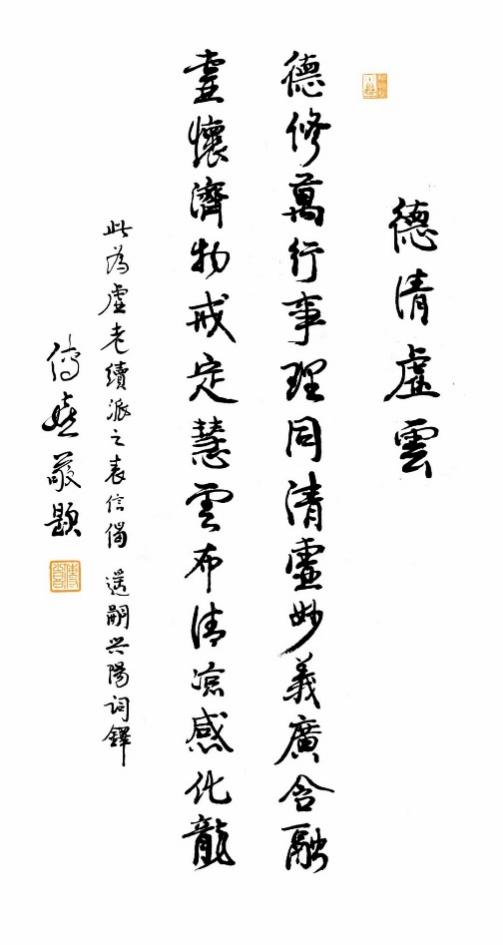 德清虛雲
德修萬行事理同清虛妙義廣含融
虛懷濟物戒定慧雲布清涼感化龍
此為虛老續派之表信偈 遙嗣兴陽詞鐸
傳喜敬題